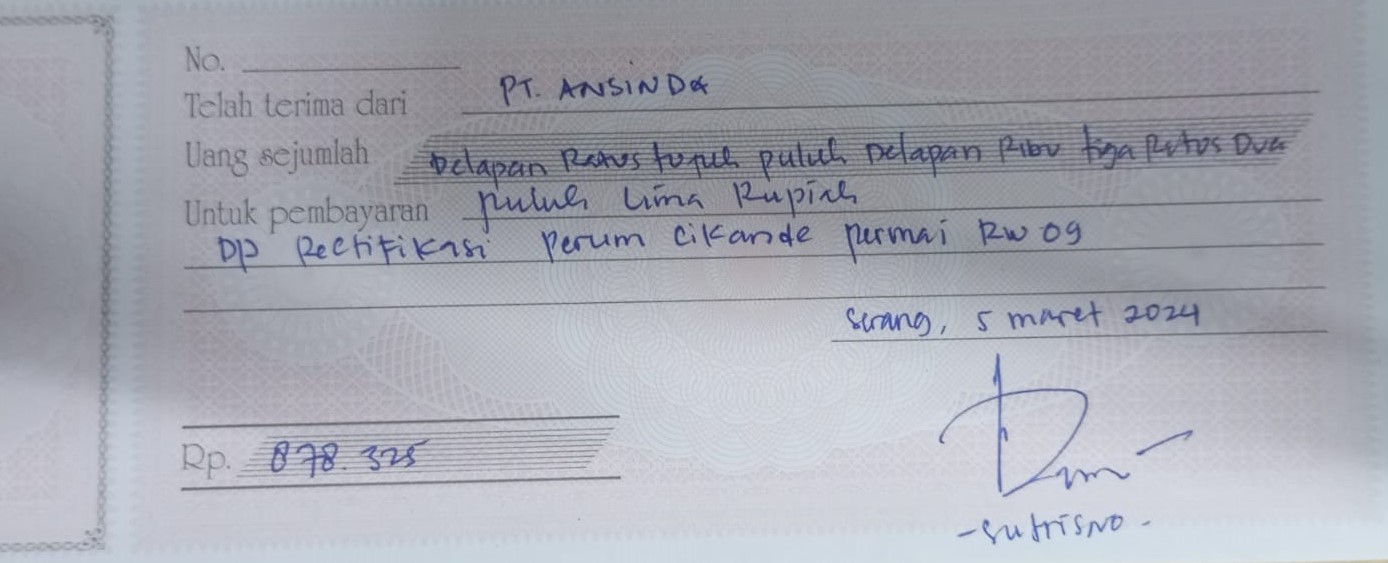 No.
Telah terima dari PT. ANSINDA
Uang sejumlah Delapan Ratus tujuh puluh Delapan Ribu tiga Ratus Dua
Untuk pembayaran puluh Lima Rupiah
DP Rectifikasi Perum Cikande permai RW 09
Serang, 5 maret 2024
Rp. 878.325
-Sutrisno-